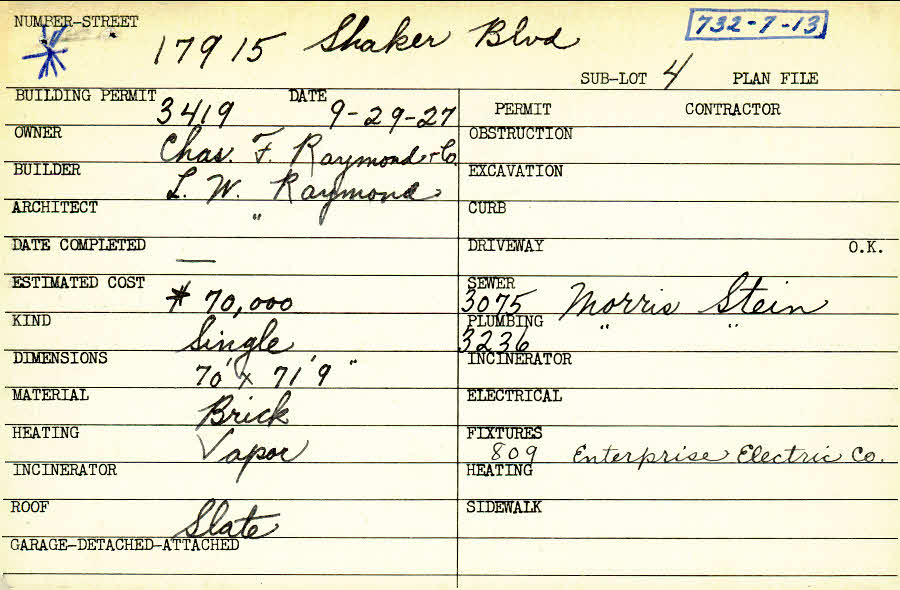 NUMBER-STREET
17915 Shaker Blvd
732-7-13
SUB-LOT 4 PLAN FILE
BUILDING PERMIT 3419 DATE 9-29-27
OWNER Chas. F. Raymond + Co.
BUILDER L. W. Raymond
ARCHITECT "
DATE COMPLETED —
ESTIMATED COST $ 70,000
KIND Single
DIMENSIONS 70' x 71' 9"
MATERIAL Brick
HEATING Vapor
INCINERATOR
ROOF Slate
GARAGE-DETACHED-ATTACHED
PERMIT CONTRACTOR
OBSTRUCTION
EXCAVATION
CURB
DRIVEWAY O.K.
SEWER
3075 Morris Stein
PLUMBING
3236 " "
INCINERATOR
ELECTRICAL
FIXTURES
809 Enterprise Electric Co.
HEATING
SIDEWALK